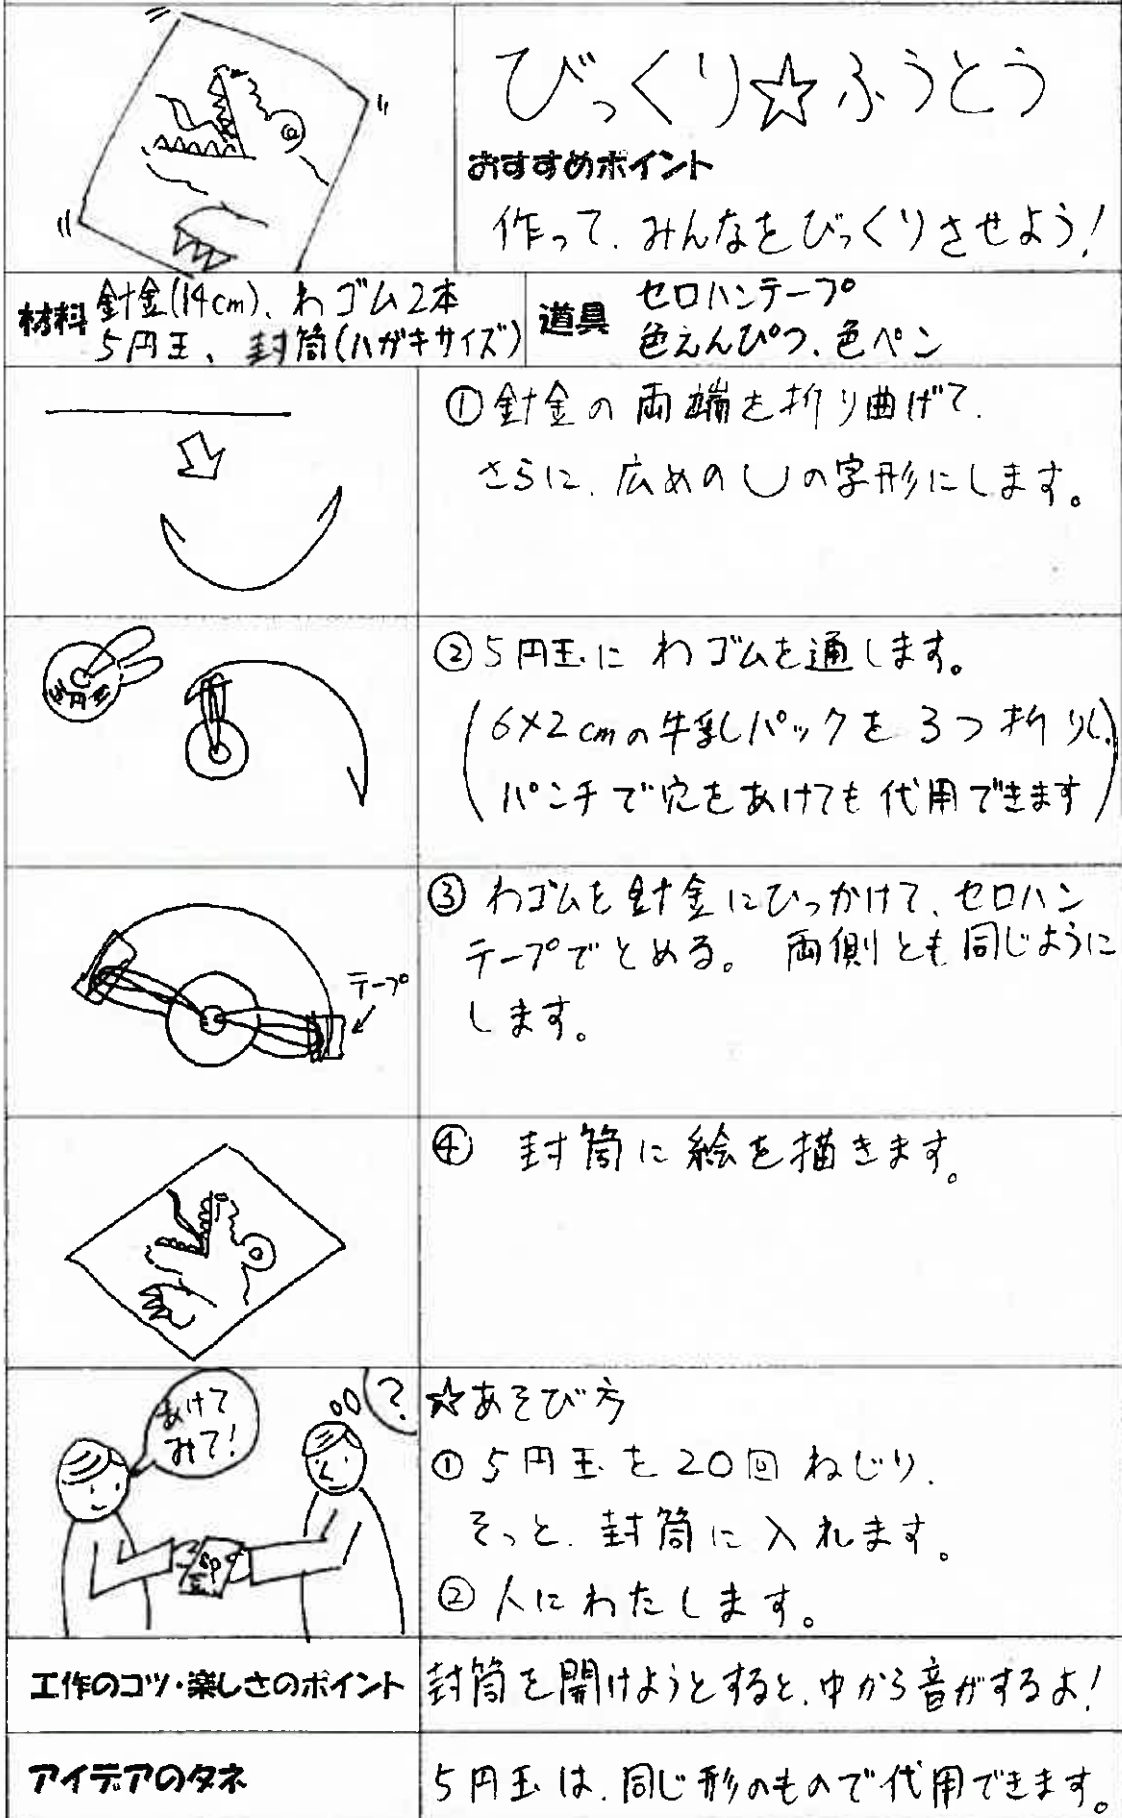 びっくり☆ふうとう
おすすめポイント
作って、みんなをびっくりさせよう!
材料 針金(14cm)、わゴム2本
5円玉、封筒(ハガキサイズ)
道具 セロハンテープ
色えんぴつ、色ペン
①針金の両端を折り曲げて、
さらに、広めのUの字形にします。
5円玉
②5円玉にわゴムを通します。
(6×2cmの牛乳パックを3つ折りし、
パンチで穴をあけても代用できます)
③わゴムを針金にひっかけて、セロハン
テープでとめる。両側とも同じように
します。
テープ
④封筒に絵を描きます。
あけて
みて!
?
☆あそび方
①5円玉を20回ねじり、
そっと、封筒に入れます。
②人にわたします。
工作のコツ・楽しさのポイント
封筒を開けようとすると、中から音がするよ!
アイデアのタネ
5円玉は、同じ形のもので代用できます。